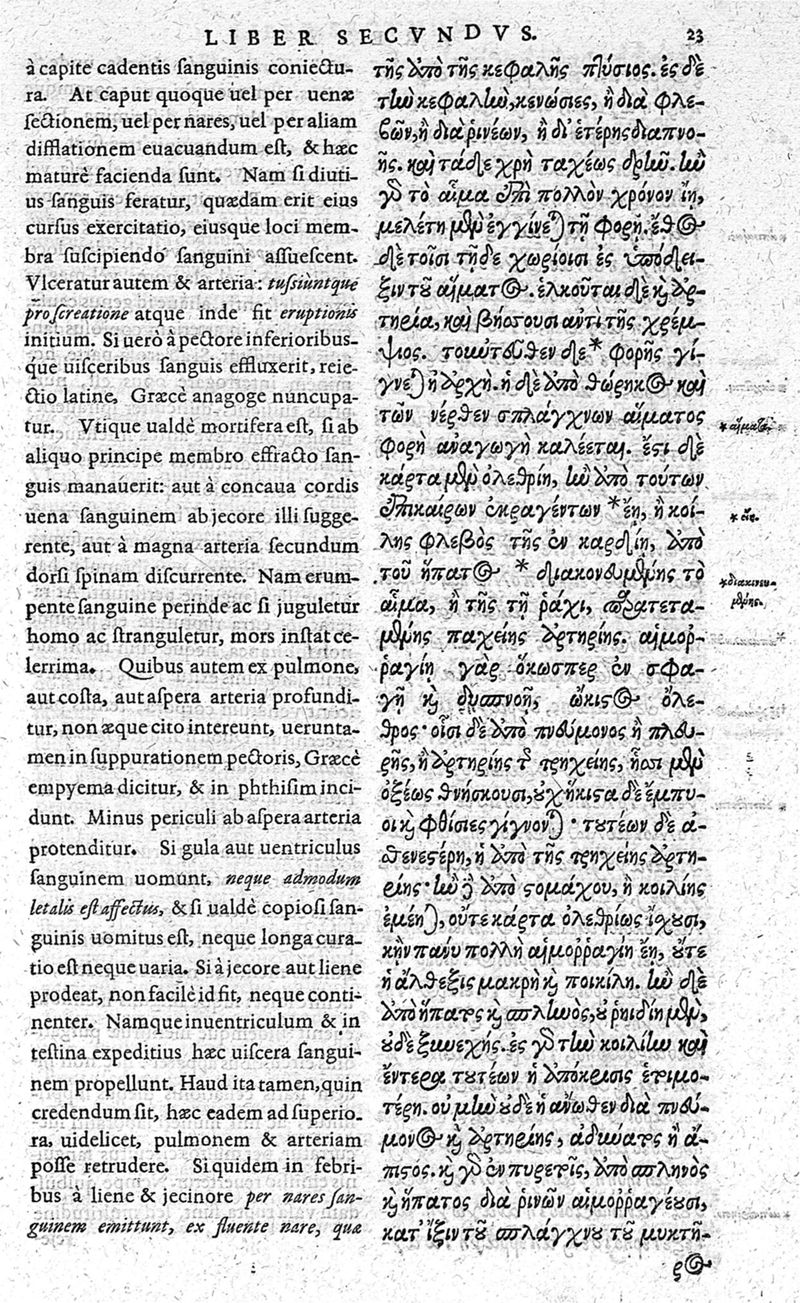 LIBER SECVNDVS. 23
à capite cadentis ſanguinis coniectu-
ra. At caput quoque uel per uenæ
ſectionem, uel per nares, uel per aliam
difflationem euacuandum eſt, & hæc
maturè facienda ſunt. Nam ſi diuti-
us ſanguis feratur, quædam erit eius
cursus exercitatio, eiusque loci mem-
bra ſuſcipiendo ſanguini aſſueſcent.
Vlceratur autem & arteria: tuſsiuntque
pro ſcreatione atque inde fit eruptionis
initium. Si uerò à pectore inferioribus-
que uiſceribus ſanguis effluxerit, reie-
ctio latine, Græcè anagoge nuncupa-
tur. Vtique ualdè mortifera eſt, ſi ab
aliquo principe membro effracto ſan-
guis manauerit: aut à concaua cordis
uena ſanguinem ab jecore illi ſugge-
rente, aut à magna arteria secundum
dorſi ſpinam diſcurrente. Nam erum-
pente ſanguine perinde ac ſi juguletur
homo ac ſtranguletur, mors inſtat ce-
lerrima. Quibus autem ex pulmone,
aut coſta, aut aſpera arteria profundi-
tur, non æque cito intereunt, uerunta-
men in ſuppurationem pectoris, Græcè
empyema dicitur, & in phthiſim inci-
dunt. Minus periculi ab aſpera arteria
protenditur. Si gula aut uentriculus
ſanguinem uomunt, neque admodum
letalis eſt affectus, & ſi ualdè copioſi ſan-
guinis uomitus eſt, neque longa cura-
tio eſt neque uaria. Si à jecore aut liene
prodeat, non facilè id fit, neque conti-
nenter. Namque in uentriculum & in
teſtina expeditius hæc uiſcera ſangui-
nem propellunt. Haud ita tamen, quin
credendum ſit, hæc eadem ad ſuperio-
ra, uidelicet, pulmonem & arteriam
poſſe retrudere. Siquidem in febri-
bus à liene & jecinore per nares ſan-
guinem emittunt, ex fluente nare, quæ
τῆς ἀπὸ τῆς κεφαλῆς πτύσιος. ἐς δὲ
τὴν κεφαλὴν, κενώσιες, ἢ διὰ φλε-
βῶν, ἢ διὰ ῥινέων, ἢ δι' ἑτέρης διαπνο-
ῆς. καὶ τάδε χρὴ ταχέως δρῆν. ἢν
γὰρ τὸ αἷμα ἐπὶ πολλὸν χρόνον ἴῃ,
μελέτη μὲν ἐγγίνεται τῇ φορῇ. ἔθος
δὲ τοῖσι τῇδε χωρίοισι ἐς ὑπόδει-
ξιν τοῦ αἵματος. ἑλκοῦται δὲ καὶ ἀρ-
τηρία, καὶ βήσσουσι αὐτὶ τῆς χρέμ-
ψιος. τοκὐτεῦθεν δὲ * φορῆς γί-
γνεται ἡ ἀρχή. ἡ δὲ ἀπὸ θώρηκος καὶ
τῶν νέρθεν σπλάγχνων αἵματος
φορὴ ἀναγωγὴ καλέεται. ἔστι δὲ
κάρτα μὲν ὀλεθρίη, ἢν ἀπὸ τούτων
ἐπικαίρων ἐκραγέντων * ἔη, ἢ κοί-
λης φλεβὸς τῆς ἐν καρδίῃ, ἀπὸ
τοῦ ἥπατος * διακονδυμένης τὸ
αἷμα, ἢ τῆς τῇ ῥάχι, παρατετα-
μένης παχείης ἀρτηρίης. αἱμορ-
ραγίη γὰρ ὅκωσπερ ἐν σφα-
γῇ καὶ δυσπνοῇ, ὤκιστος ὄλε-
θρος· οἷσι δὲ ἀπὸ πνεύμονος ἢ πλευ-
ρῆς, ἢ ἀρτηρίης τῆς τρηχείης, ἧσσι μὲν
ὀξέως θνήσκουσι, οὐχ ἥκιστα δὲ ἔμπυ-
οι καὶ φθίσιες γίγνονται· τουτέων δὲ ἀ-
σθενεστέρη, ἡ ἀπὸ τῆς τρηχείης ἀρτη-
ρίης· ἢν δὲ ἀπὸ στομάχου, ἢ κοιλίης
ἐμέηται, οὔτε κάρτα ὀλεθρίως ἴχουσι,
κἢν πάνυ πολλὴ αἱμορραγίη ἔῃ, οὔτε
ἡ ἄλθεξις μακρὴ καὶ ποικίλη. ἢν δὲ
ἀπὸ ἥπατος καὶ σπληνὸς, οὐ ῥηιδίη μὲν,
οὐδὲ ξυνεχής. ἐς γὰρ τὴν κοιλίην καὶ
ἔντερα τουτέων ἡ ἀπόκρισις ἑτιμο-
τέρη. οὐ μὴν οὐδὲ ἡ ἄνωθεν διὰ πνεύ-
μονος καὶ ἀρτηρίης, ἀδύνατος ἢ ἄ-
πιστος. καὶ γὰρ ἐν πυρετοῖς, ἀπὸ σπληνὸς
καὶ ἥπατος διὰ ῥινῶν αἱμορραγέουσι,
κατ' ἴξιν τοῦ σπλάγχνου τοῦ μυκτῆ-
ρος
* αἵματος.
* εἴη.
* διακινευ-
μένης.